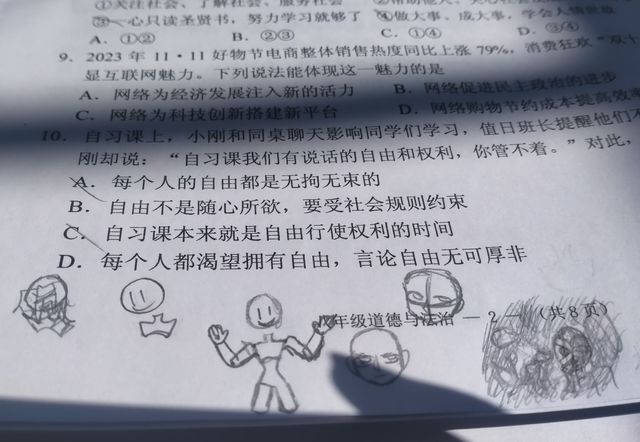 ①关注社会、了解社会、服务社会
③一心只读圣贤书，努力学习就够了 ④做大事、成大事，学会人情世故
A. ①② B. ②③ C. ①④ D. ③④
9. 2023年11·11好物节电商整体销售热度同比上涨79%，消费狂欢“双十
显互联网魅力。下列说法能体现这一魅力的是
A. 网络为经济发展注入新的活力 B. 网络促进民主政治的进步
C. 网络为科技创新搭建新平台 D. 网络购物节约成本提高效率
10. 自习课上，小刚和同桌聊天影响同学们学习，值日班长提醒他们不
刚却说：“自习课我们有说话的自由和权利，你管不着。”对此，
A. 每个人的自由都是无拘无束的
B. 自由不是随心所欲，要受社会规则约束
C. 自习课本来就是自由行使权利的时间
D. 每个人都渴望拥有自由，言论自由无可厚非
年级道德与法治 — 2 — （共8页）